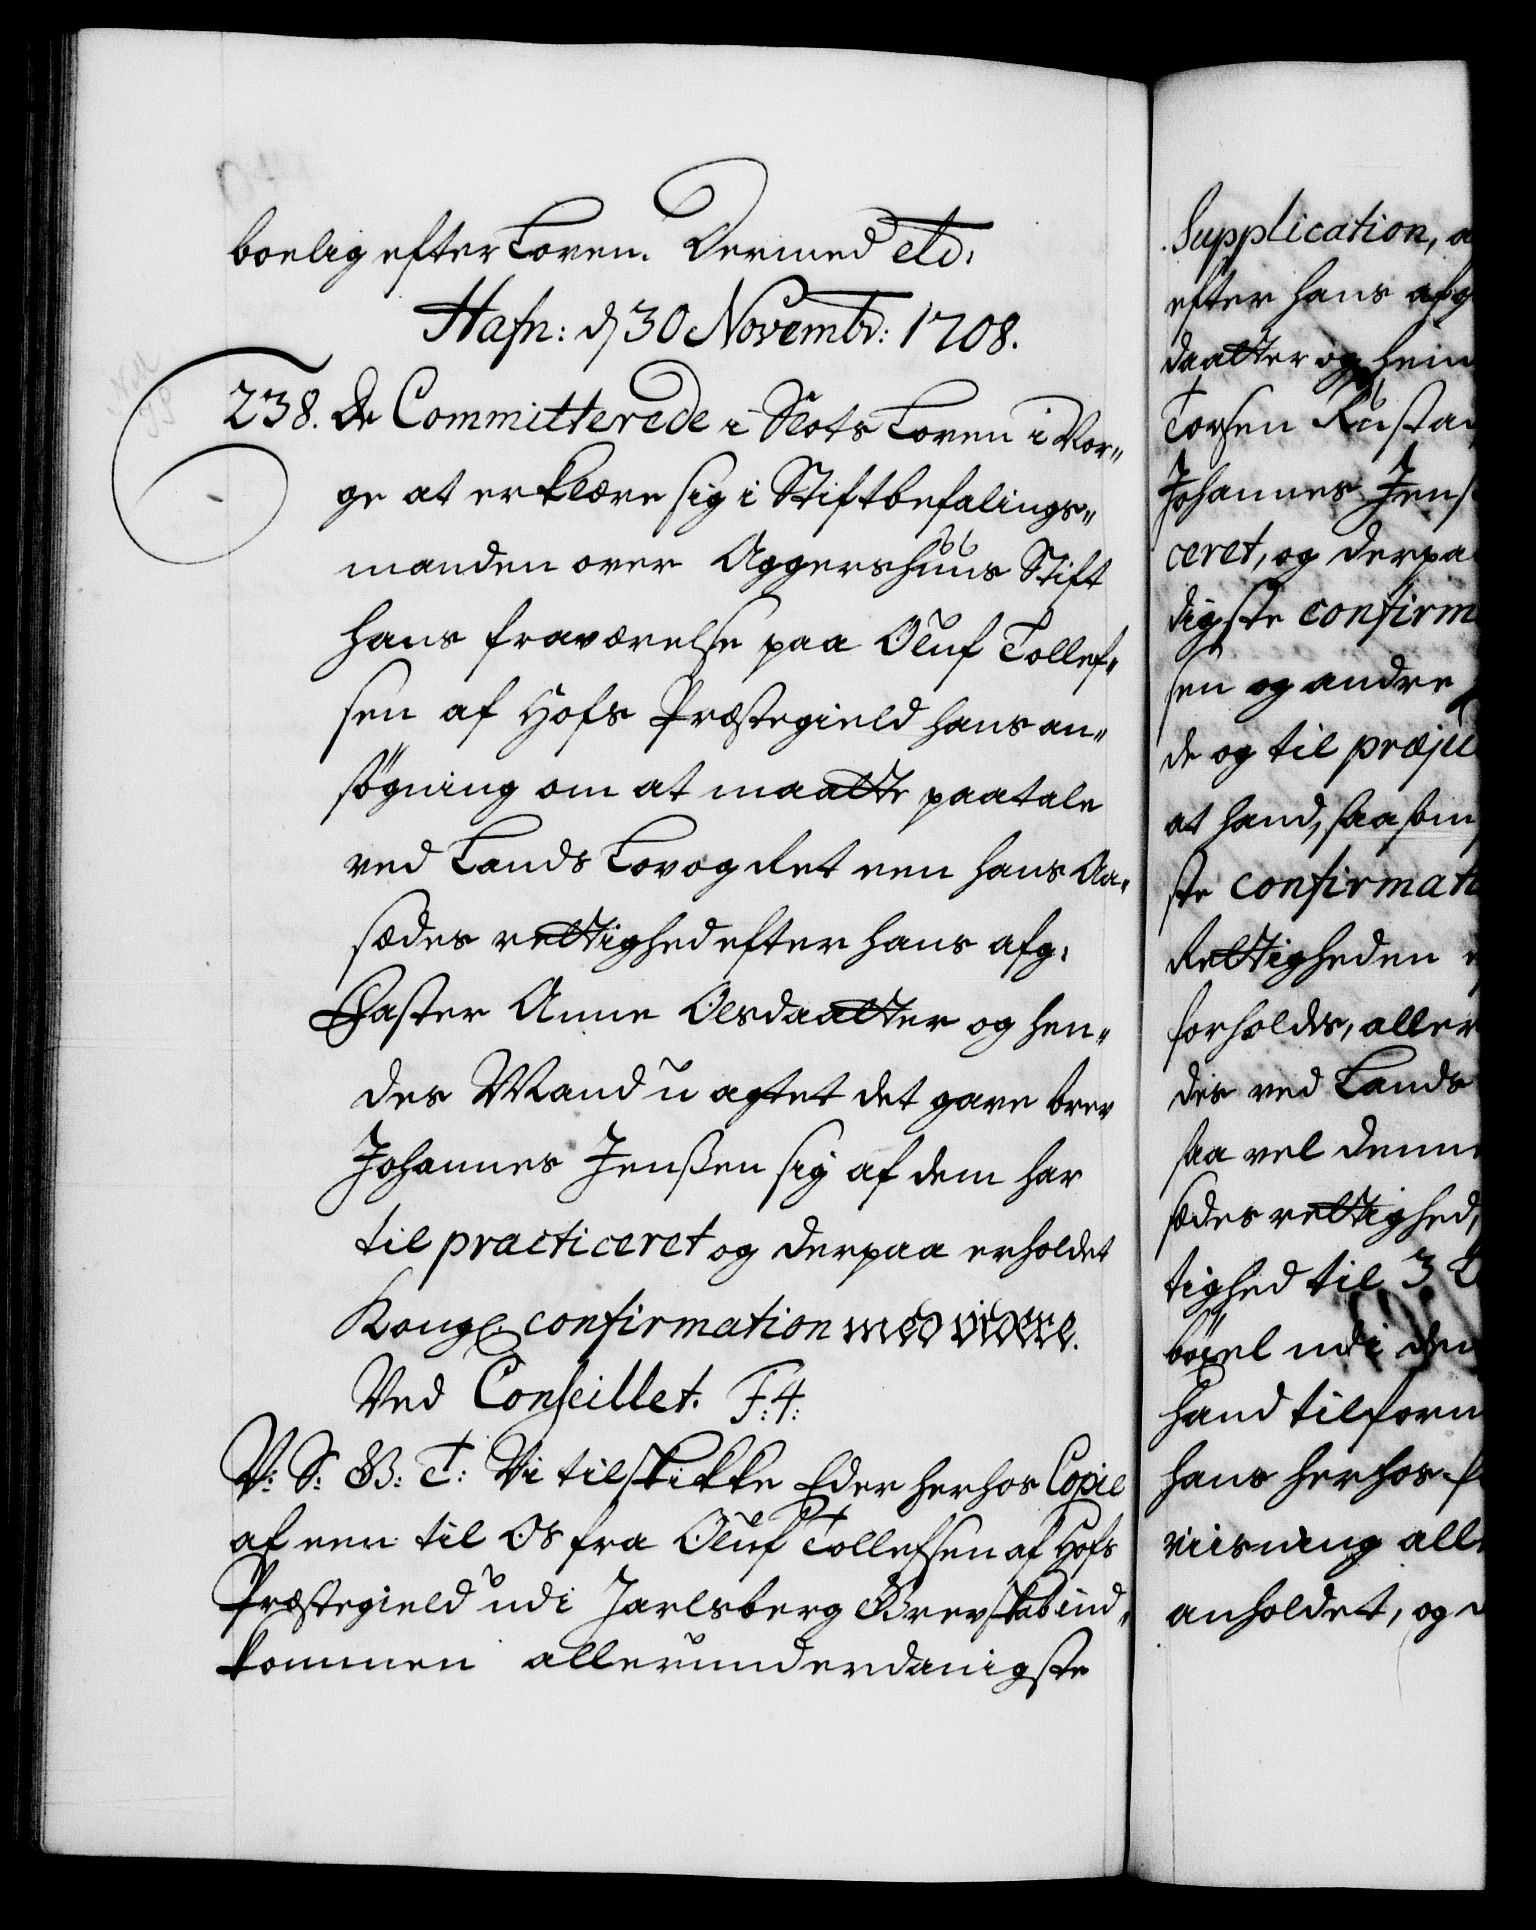 boelig efter Loven. Dermed etc:
Hafn: d 30 Novembr: 1708.
238. De Committerede i Slots Loven i Nor-
ge at erklære sig i Stiftbefalings-
manden over Aggershuus Stift
hans fraværelse paa Oluf Tollef-
sen af Hofs Præstegield hans an-
søgning om at maatte paatale
ved Lands Lov og Ret een hans Aa-
sædes rettighed efter hans afg:
Faster Anne Olsdaatter og hen-
des Mand uagtet det gave brev
Johannes Jenssen sig af dem har
til practiceret og derpaa erholdet
Kongl. confirmation med videre.
Ved Conseillet. F: 4:
V: S: G: B: T: Vi tilskikke Eder herhos Copie
af een til Os fra Oluf Tollefsen af Hofs
Præstegield udi Jarlsberg Grevskab ind-
kommen allerunderdanigste
Supplication,
efter hans afg
daatter og hen
Torsen Rustad
Johannes Jens
ceret, og derpaa
digste confirm
sen og andre
de og til præju
at hand, saasom
ste confirmati
Rettigheden
forholdes, aller
des ved Lands
saa vel denne
sædes rettighed,
tighed til 3
bøyel udi den
hand tilforn
hans herhos
viisning alle
anholdet, og